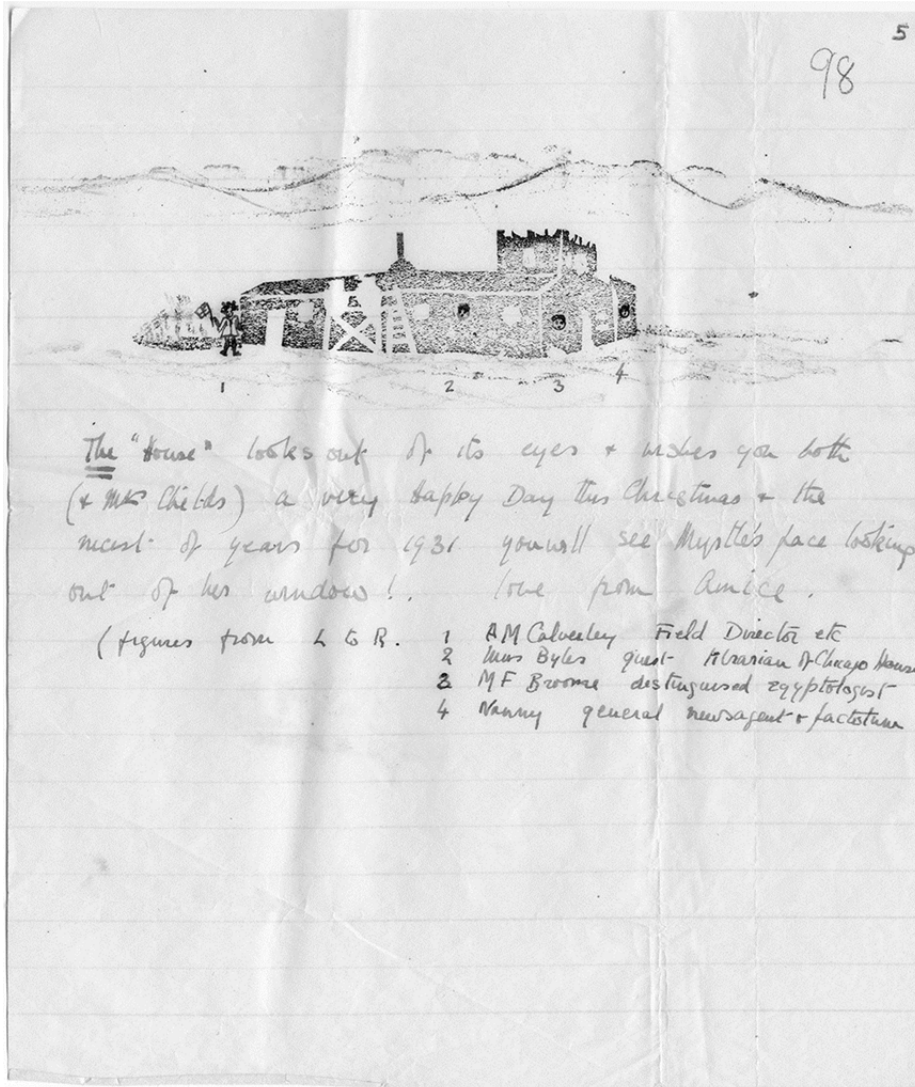 5
98
1 2 3 4
The "House" looks out of its eyes & wishes you both
(& Mrs Childs) a very Happy Day this Christmas & the
nicest of years for 1931 you will see Myrtle's face looking
out of her window! . love from Amice .
(figures from L to R. 1 AM Calverley Field Director etc
2 Miss Byles guest librarian of Chicago House
3 M F Broome distinguised egyptologist
4 Nanny general newsagent & factotum